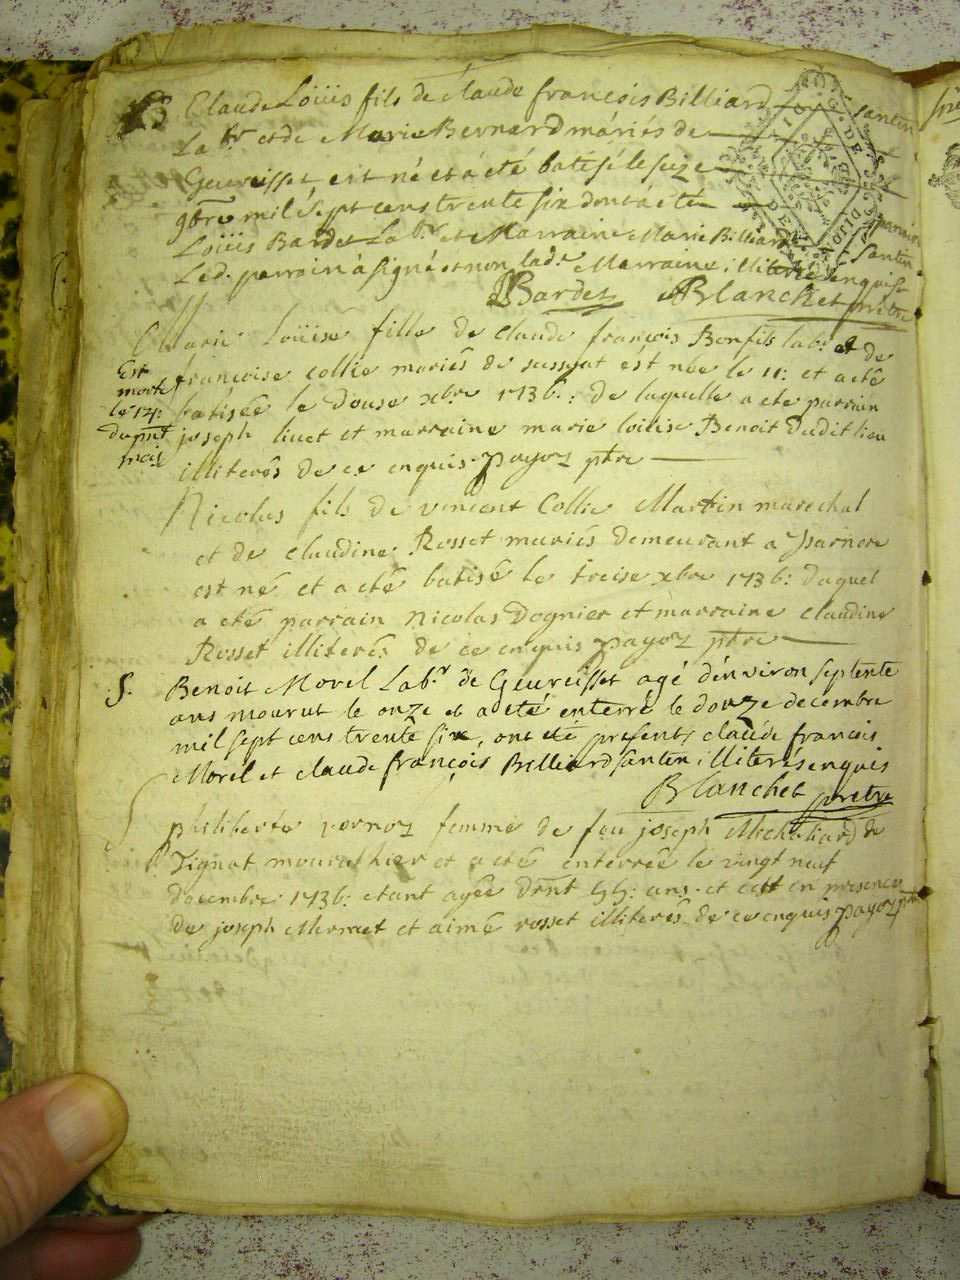 B Claude Loüis fils de Claude françois Billiard santin
Lab.r et de Marie Bernard mariés de
Geureisset, est né et a été batisé le seze
9bre mil sept cens trente six dont à été parrain
Loüis Bardet Lab.r et Marraine Marie Billiard Santin
Led. parrain à signé et non lad.e Marraine illiterée énquise
Bardet Blanchet prètre
Marie Loüise fille de Claude françois Bonfils lab.r et de
françoise collie mariés de sussyat est née le 11: et a eté
batisée le douse xbre 1736: de laquelle a ete parrain
joseph livet et marraine marie loüise Benoit dudit lieu
illiterés de ce enquis. payoz ptre
Est
morte
le 14:
du pnt
mois
Nicolas fils de vincent Collie Martin marechal
et de Claudine Rosset mariés demeurant a ysarnore
est né et a eté batisé le treise xbre 1736: duquel
a eté parrain Nicolas Dognier et marraine Claudine
Rosset illiterés de ce enquis payoz ptre
S. Benoit Morel Lab.r de Geureisset agé dénviron septente
ans mourut le onze et a eté enterré le donze decembre
mil sept cens trente six, ont été présents claude francois
Morel et claude françois Belliard santin illiterés enquis
Blanchet prètre
philiberte vernoz femme de feu joseph Michaliard de
Tignat mourut hier et a eté enterrée le vingt neuf
decembre 1736: etant agée dont 55: ans. et c'est en presence
de joseph Mermet et aimé rosset illiterés de ce enquis payoz ptre